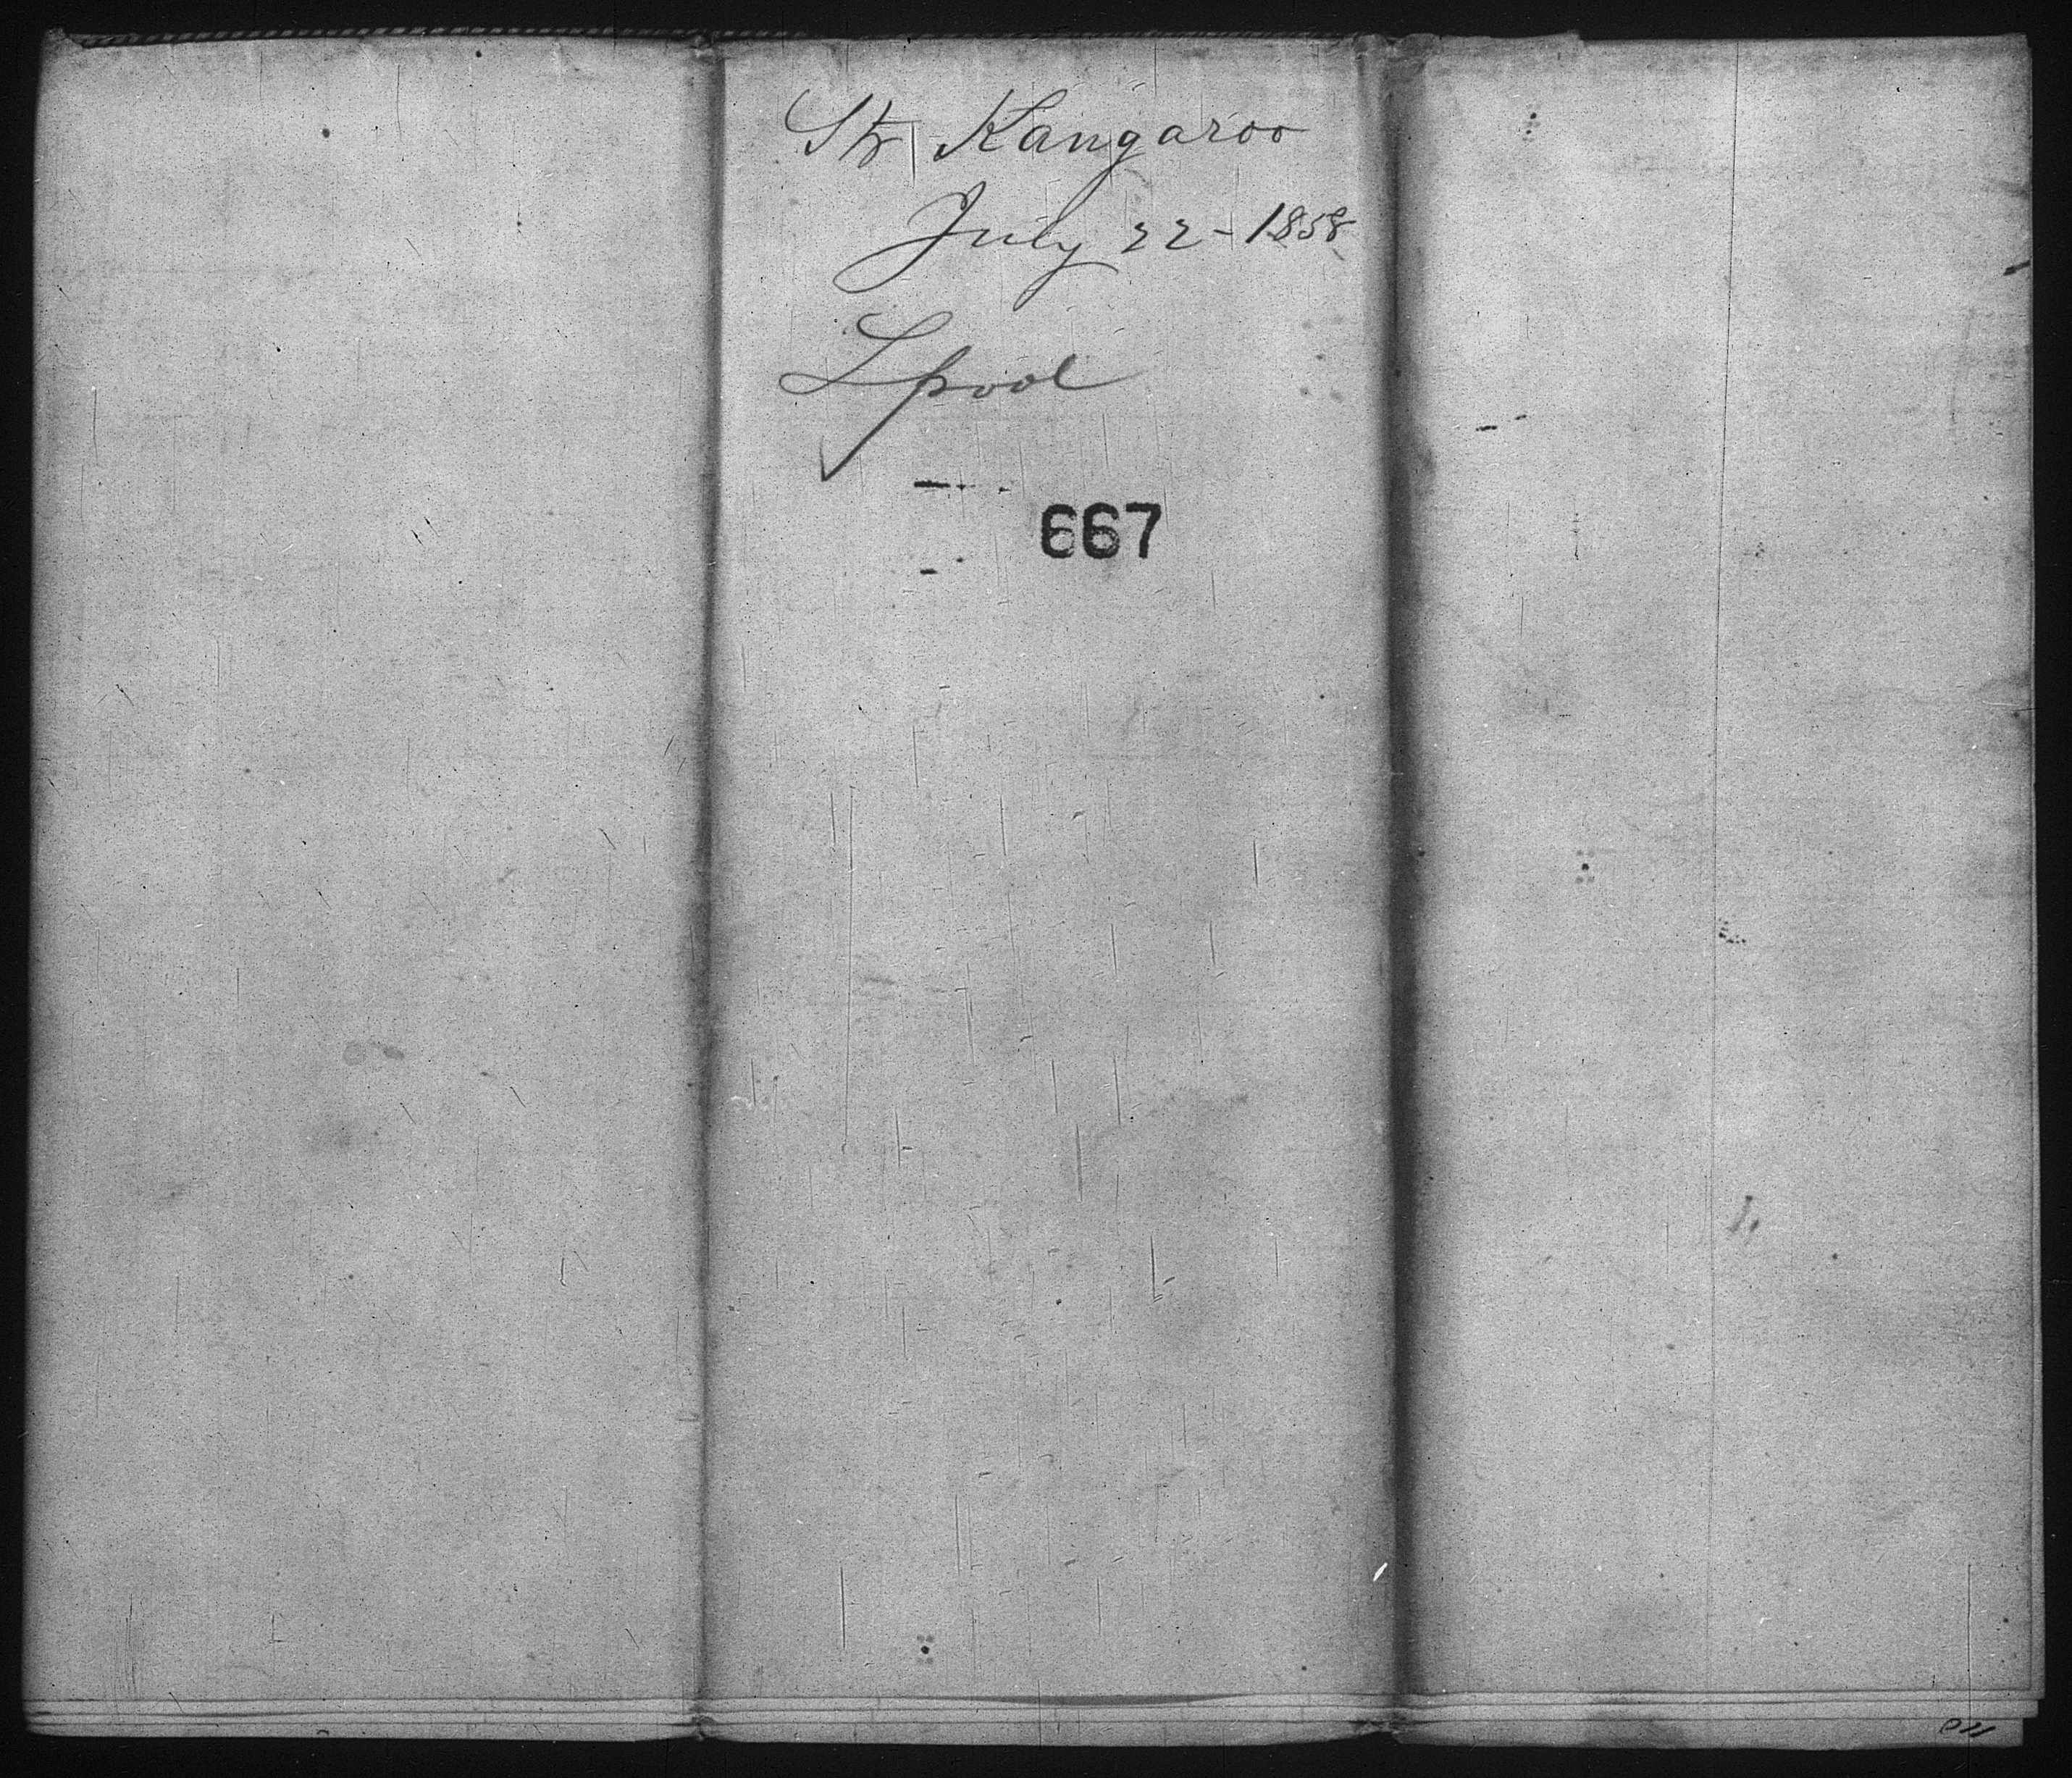 Str Kangaroo
July 22 - 1858
Lpool
667